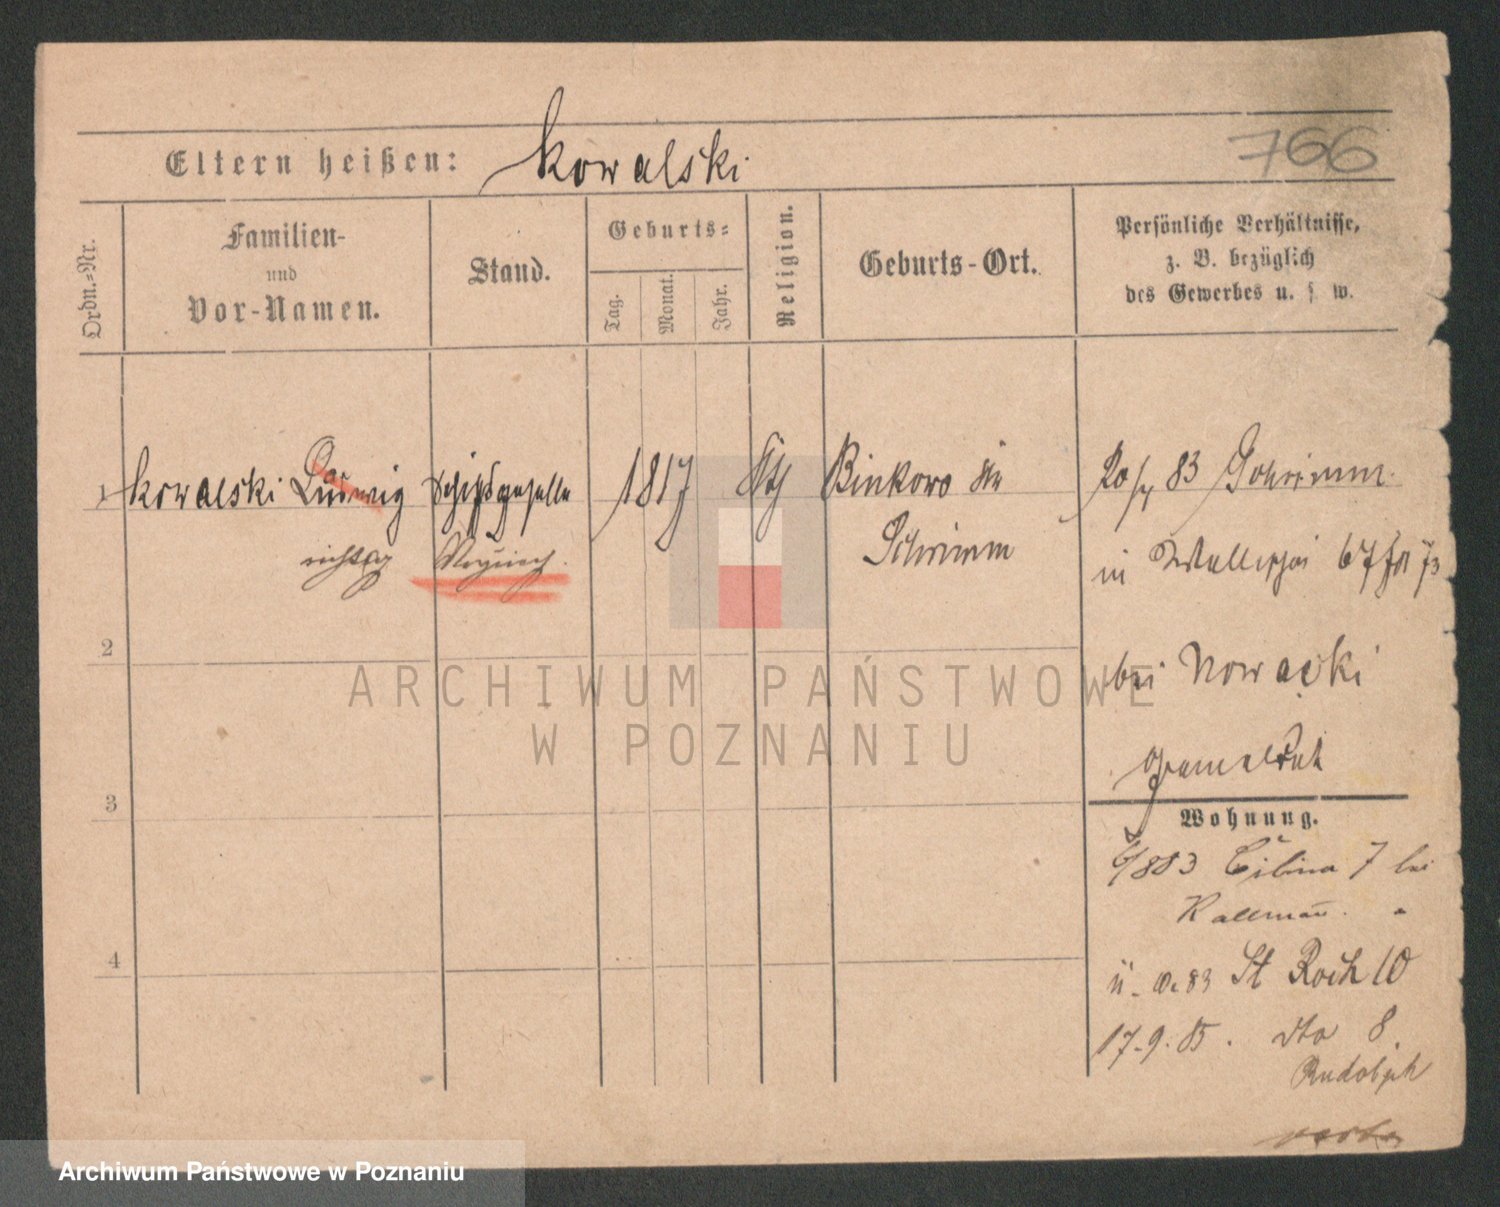 766
Eltern heißen: Kowalski
Ordn.-Nr.
Familien-
und
Vor-Namen.
Stand.
Geburts-
Tag.
Monat.
Jahr.
Religion.
Geburts-Ort.
Persönliche Verhältnisse,
z. B. bezüglich
des Gewerbes u. s w.
1 Kowalski Ludwig Schiffsgeselle 1817 Kth Binkowo Kr 83 Schrimm
richtig Schrimm in 67
2
bei Nowacki
3
Wohnung.
6/883 7 bei
Kallman
4
83 St Roch 10
17.9.85. dto 8.
Rudolph
ARCHIWUM PAŃSTWOWE
W POZNANIU
Archiwum Państwowe w Poznaniu